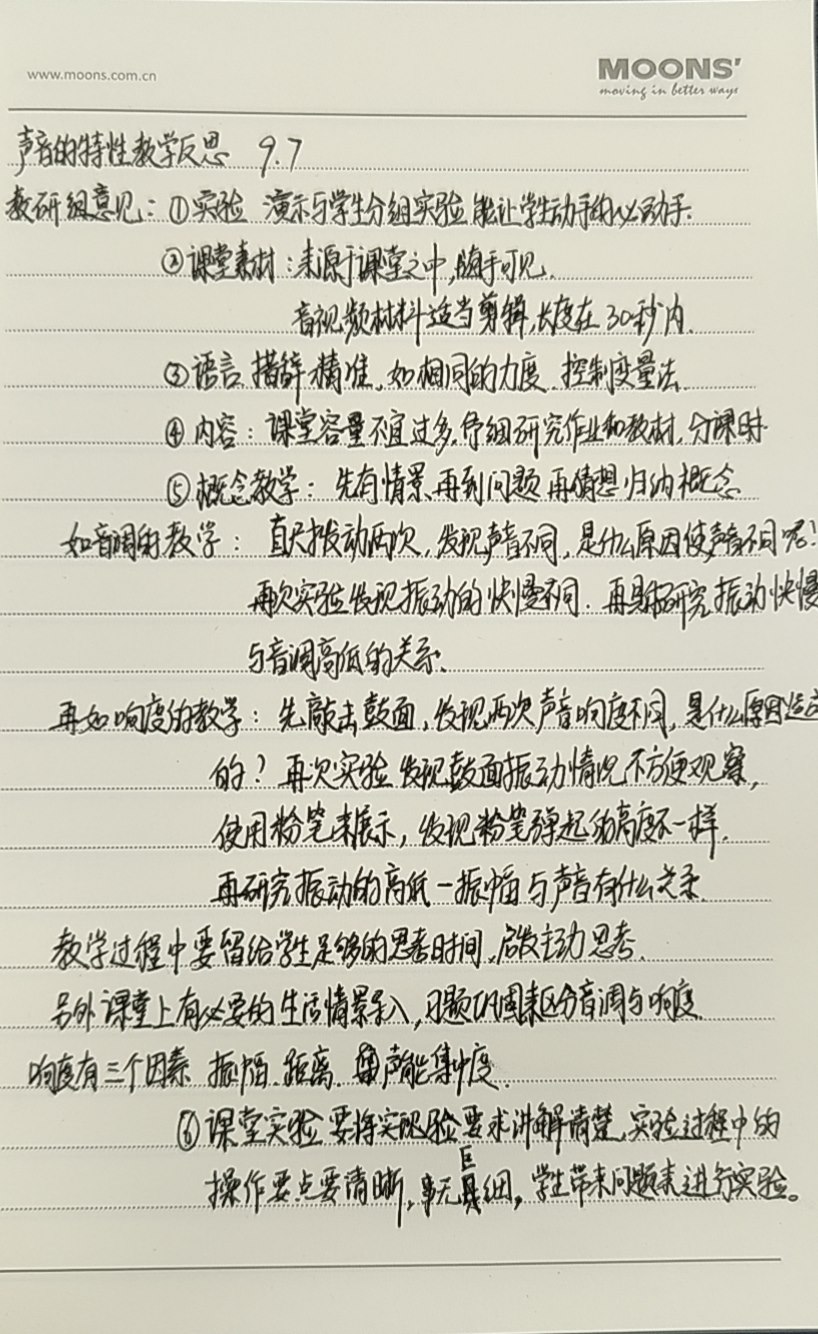 www.moons.com.cn
MOONS'
moving in better ways
声音的特性教学反思 9.7
教研组意见：①实验 演示与学生分组实验 能让学生动手的必动手.
②课堂素材：来源于课堂之中，随手可见.
音视频材料适当剪辑，长度在30秒内.
③语言 措辞精准，如相同的力度 控制变量法
④内容：课堂容量不宜过多，仔细研究作业和教材，分课时
⑤概念教学：先有情景、再到问题 再猜想 归纳概念
如音调的教学：直尺拨动两次，发现声音不同，是什么原因使声音不同呢！
再次实验发现振动的快慢不同. 再研究振动快慢
与音调高低的关系.
再如响度的教学：先敲击鼓面，发现两次声音响度不同，是什么原因造成
的？再次实验 发现鼓面振动情况不方便观察，
使用粉笔来展示，发现粉笔弹起的高度不一样.
再研究振动的高低－振幅与声音有什么关系.
教学过程中要留给学生足够的思考时间，启发主动思考.
另外课堂上有必要的生活情景导入，习题巩固来区分音调与响度.
响度有三个因素 振幅、距离、声能集中度.
⑥课堂实验要将实验要求讲解清楚，实验过程中的
操作要点要清晰，事无巨细，学生带来问题来进行实验。